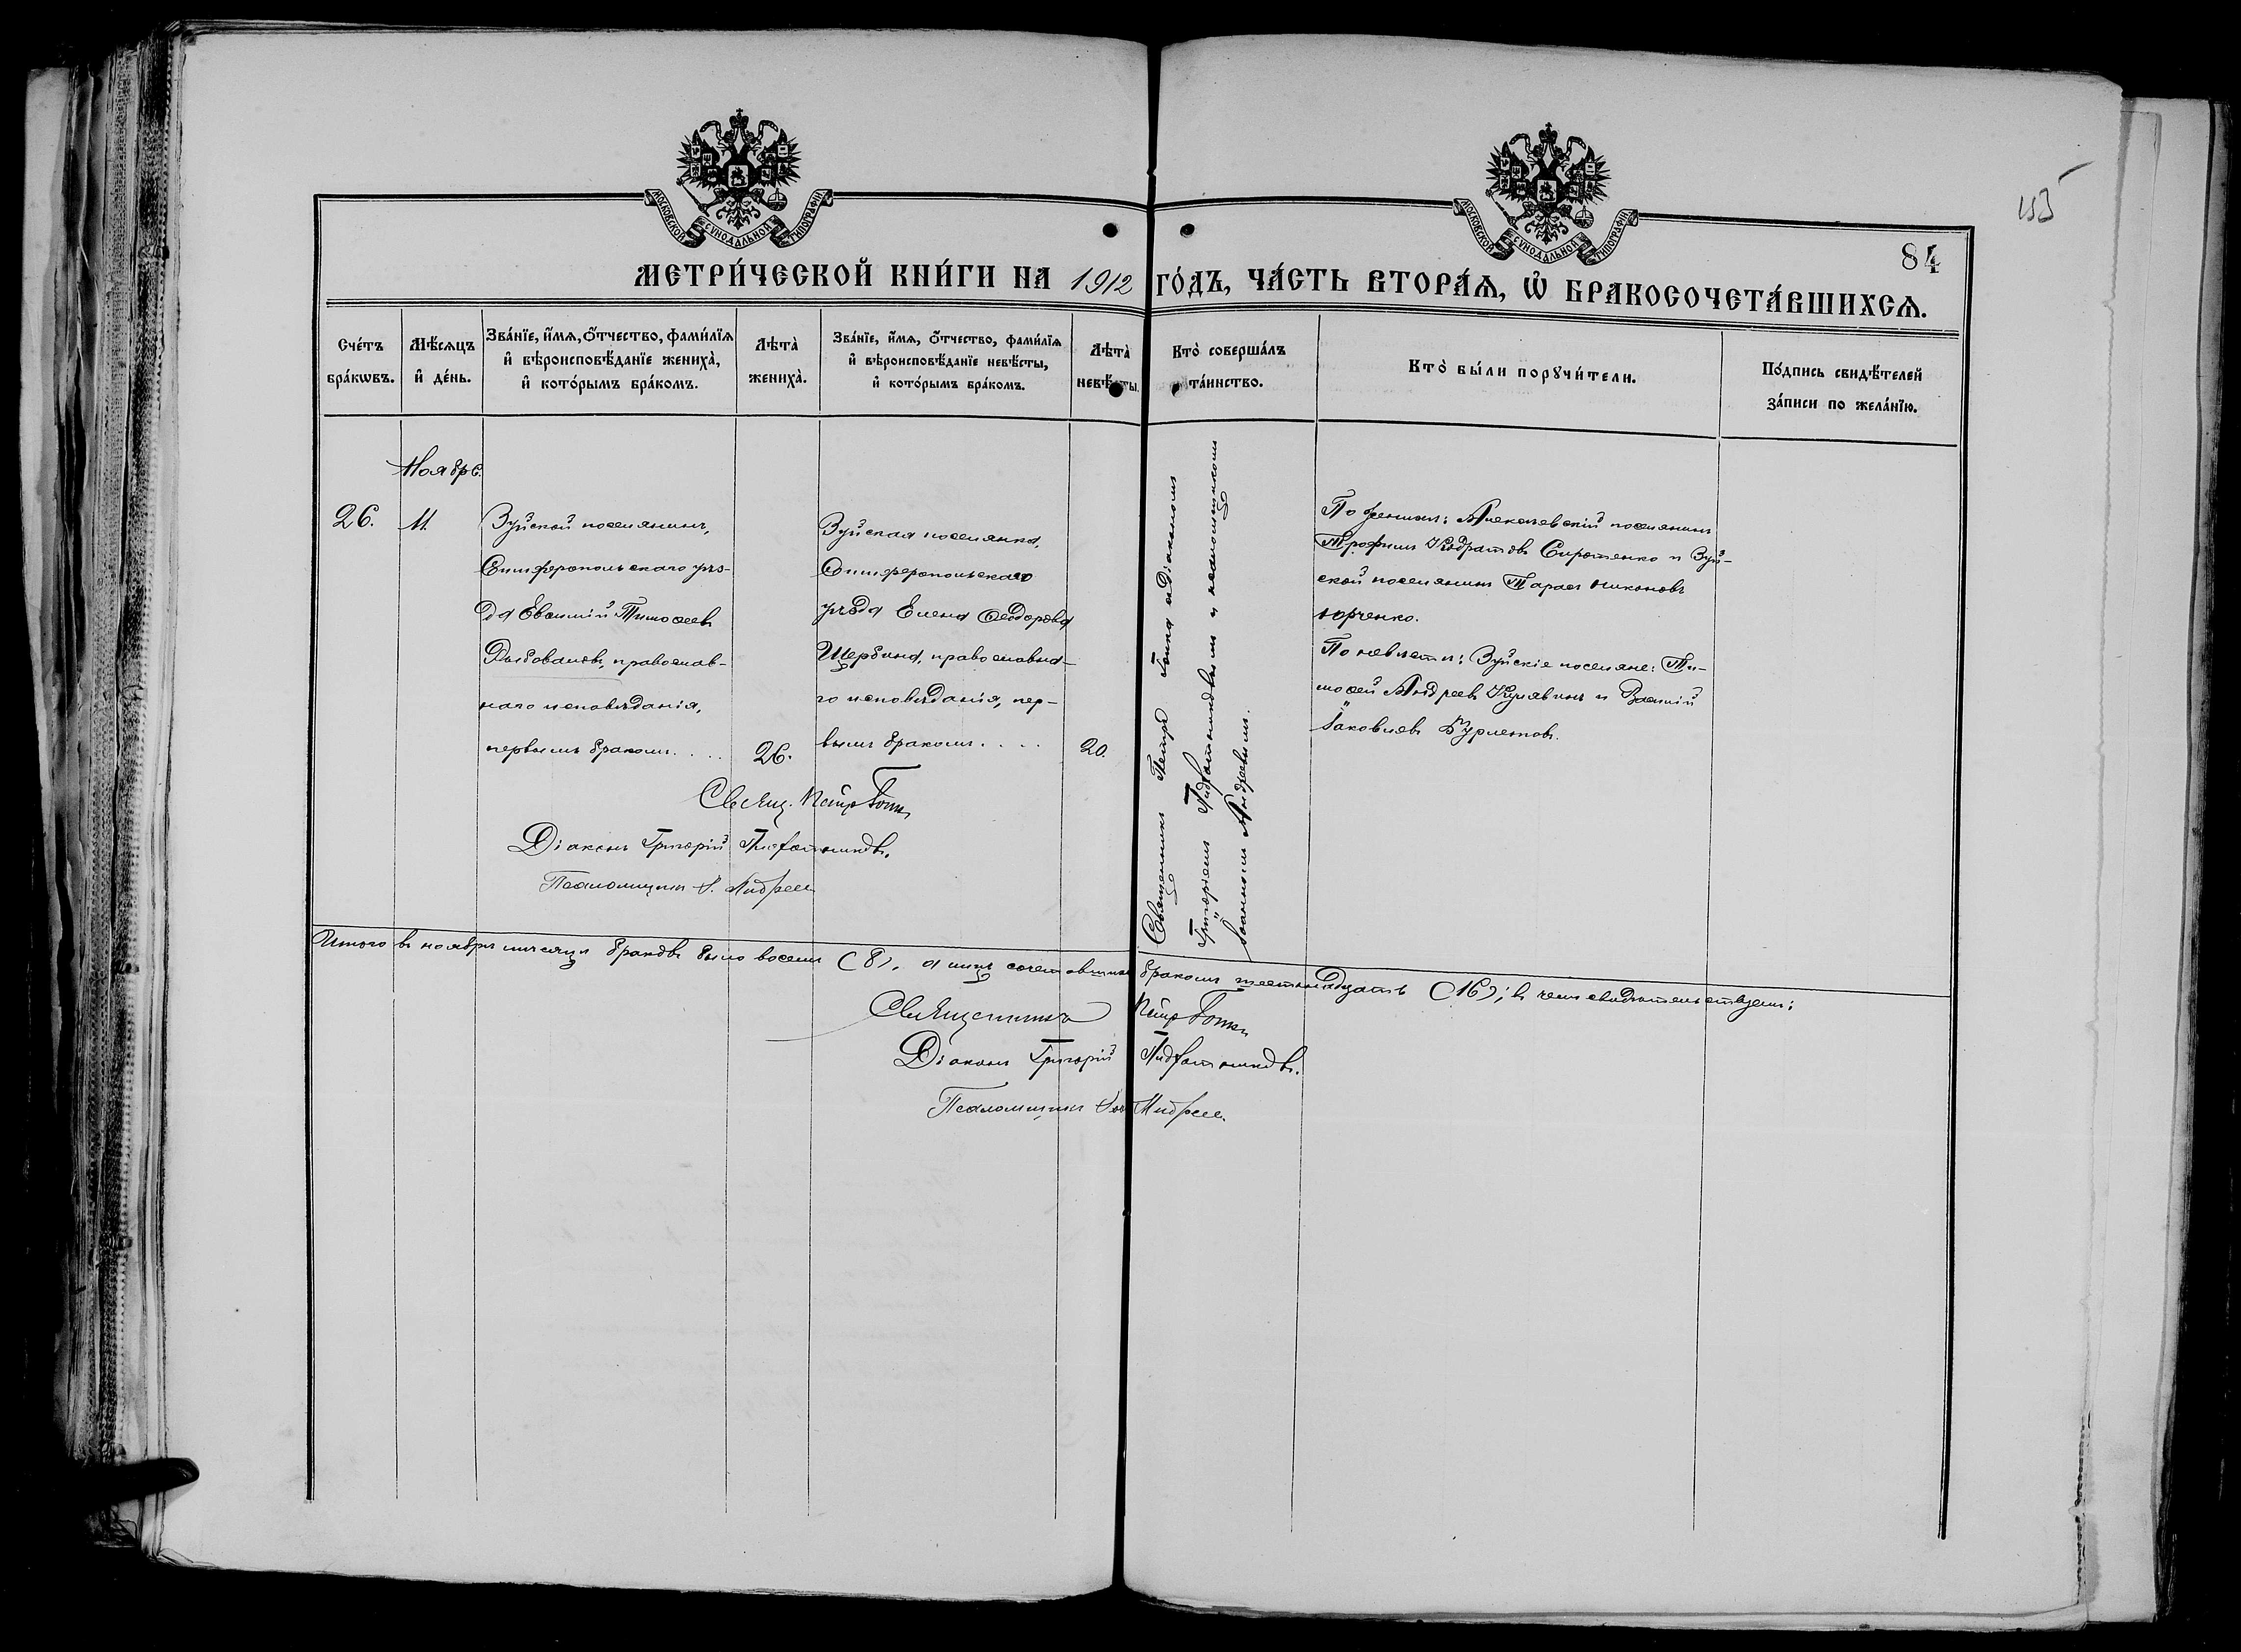 МОСКОВСКОЙ СѴНОДАЛЬНОЙ ТИПОГРАФІИ
МОСКОВСКОЙ СѴНОДАЛЬНОЙ ТИПОГРАФІИ
153
84
МЕТРИ́ЧЕСКОЙ КНИ́ГИ НА 1912 ГО́ДЪ, ЧА́СТЬ ВТОРА́Ѧ, Ѽ БРАКОСОЧЕТА́ВШИХСѦ.
Сче́тъ
бра́кѡвъ.
Мѣ́сѧцъ
и҆ де́нь.
Зва́нїе, и҆́мѧ, о҆́тчество, фами́лїѧ
и҆ вѣроисповѣ́данїе жениха̀,
и҆ кото́рымъ бра́комъ.
Лѣта̀
жениха̀.
Зва́нїе, и҆́мѧ, о҆́тчество, фами́лїѧ
и҆ вѣроисповѣ́данїе невѣ́сты,
и҆ кото́рымъ бра́комъ.
Лѣта̀
невѣ́сты.
Кто̀ соверша́лъ
та́инство.
Кто̀ бы́ли порꙋчи́тели.
По́дпись свидѣ́телей
за́писи по жела́нїю.
Ноябрь.
26.
11.
Зуйской поселянинъ,
Симферопольскаго уѣз-
да Евѳимій Тимоѳеевъ
православ-
наго исповѣданія,
первымъ бракомъ....
26.
Зуйская поселянка,
Симферопольскаго
уѣзда Елена Ѳеодорова
Щербина, православна-
го исповѣданія, пер-
вымъ бракомъ....
20.
Священникъ Петръ Гопка съ діакономъ
Григоріемъ и псаломщикомъ
Іоанномъ Андреевымъ.
По женихѣ: Алексѣевскій поселянинъ
Трофимъ Кодратовъ Сиротенко и Зуй-
ской поселянинъ Тарасъ Никоновъ
Юрченко.
По невѣстѣ: Зуйскіе поселяне: Ти-
моѳей Андреевъ Кулявинъ и Василій
Іаковлевъ Бурлаковъ.
Свящ. Петръ Гопка
Діаконъ Григорій
Псаломщикъ І. Андреевъ
Итого въ ноябрѣ мѣсяцѣ браковъ было восемь (8), а лицъ сочетавшихся бракомъ шестнадцать (16); въ чемъ свидѣтельствуемъ:
Священникъ Петръ Гопка
Діаконъ Григорій
Псаломщикъ Іоаннъ Андреевъ